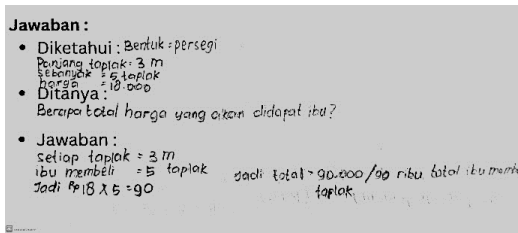 Jawaban :
• Diketahui : Bentuk = persegi
Panjang taplak = 3 m
Sebanyak = 5 taplak
harga = 18.000
• Ditanya :
Berapa total harga yang akan didapat ibu?
• Jawaban :
Setiap taplak = 3 m
ibu membeli = 5 taplak
Jadi Rp 18 X 5 = 90
Jadi total = 90.000 / 90 ribu total ibu
taplak